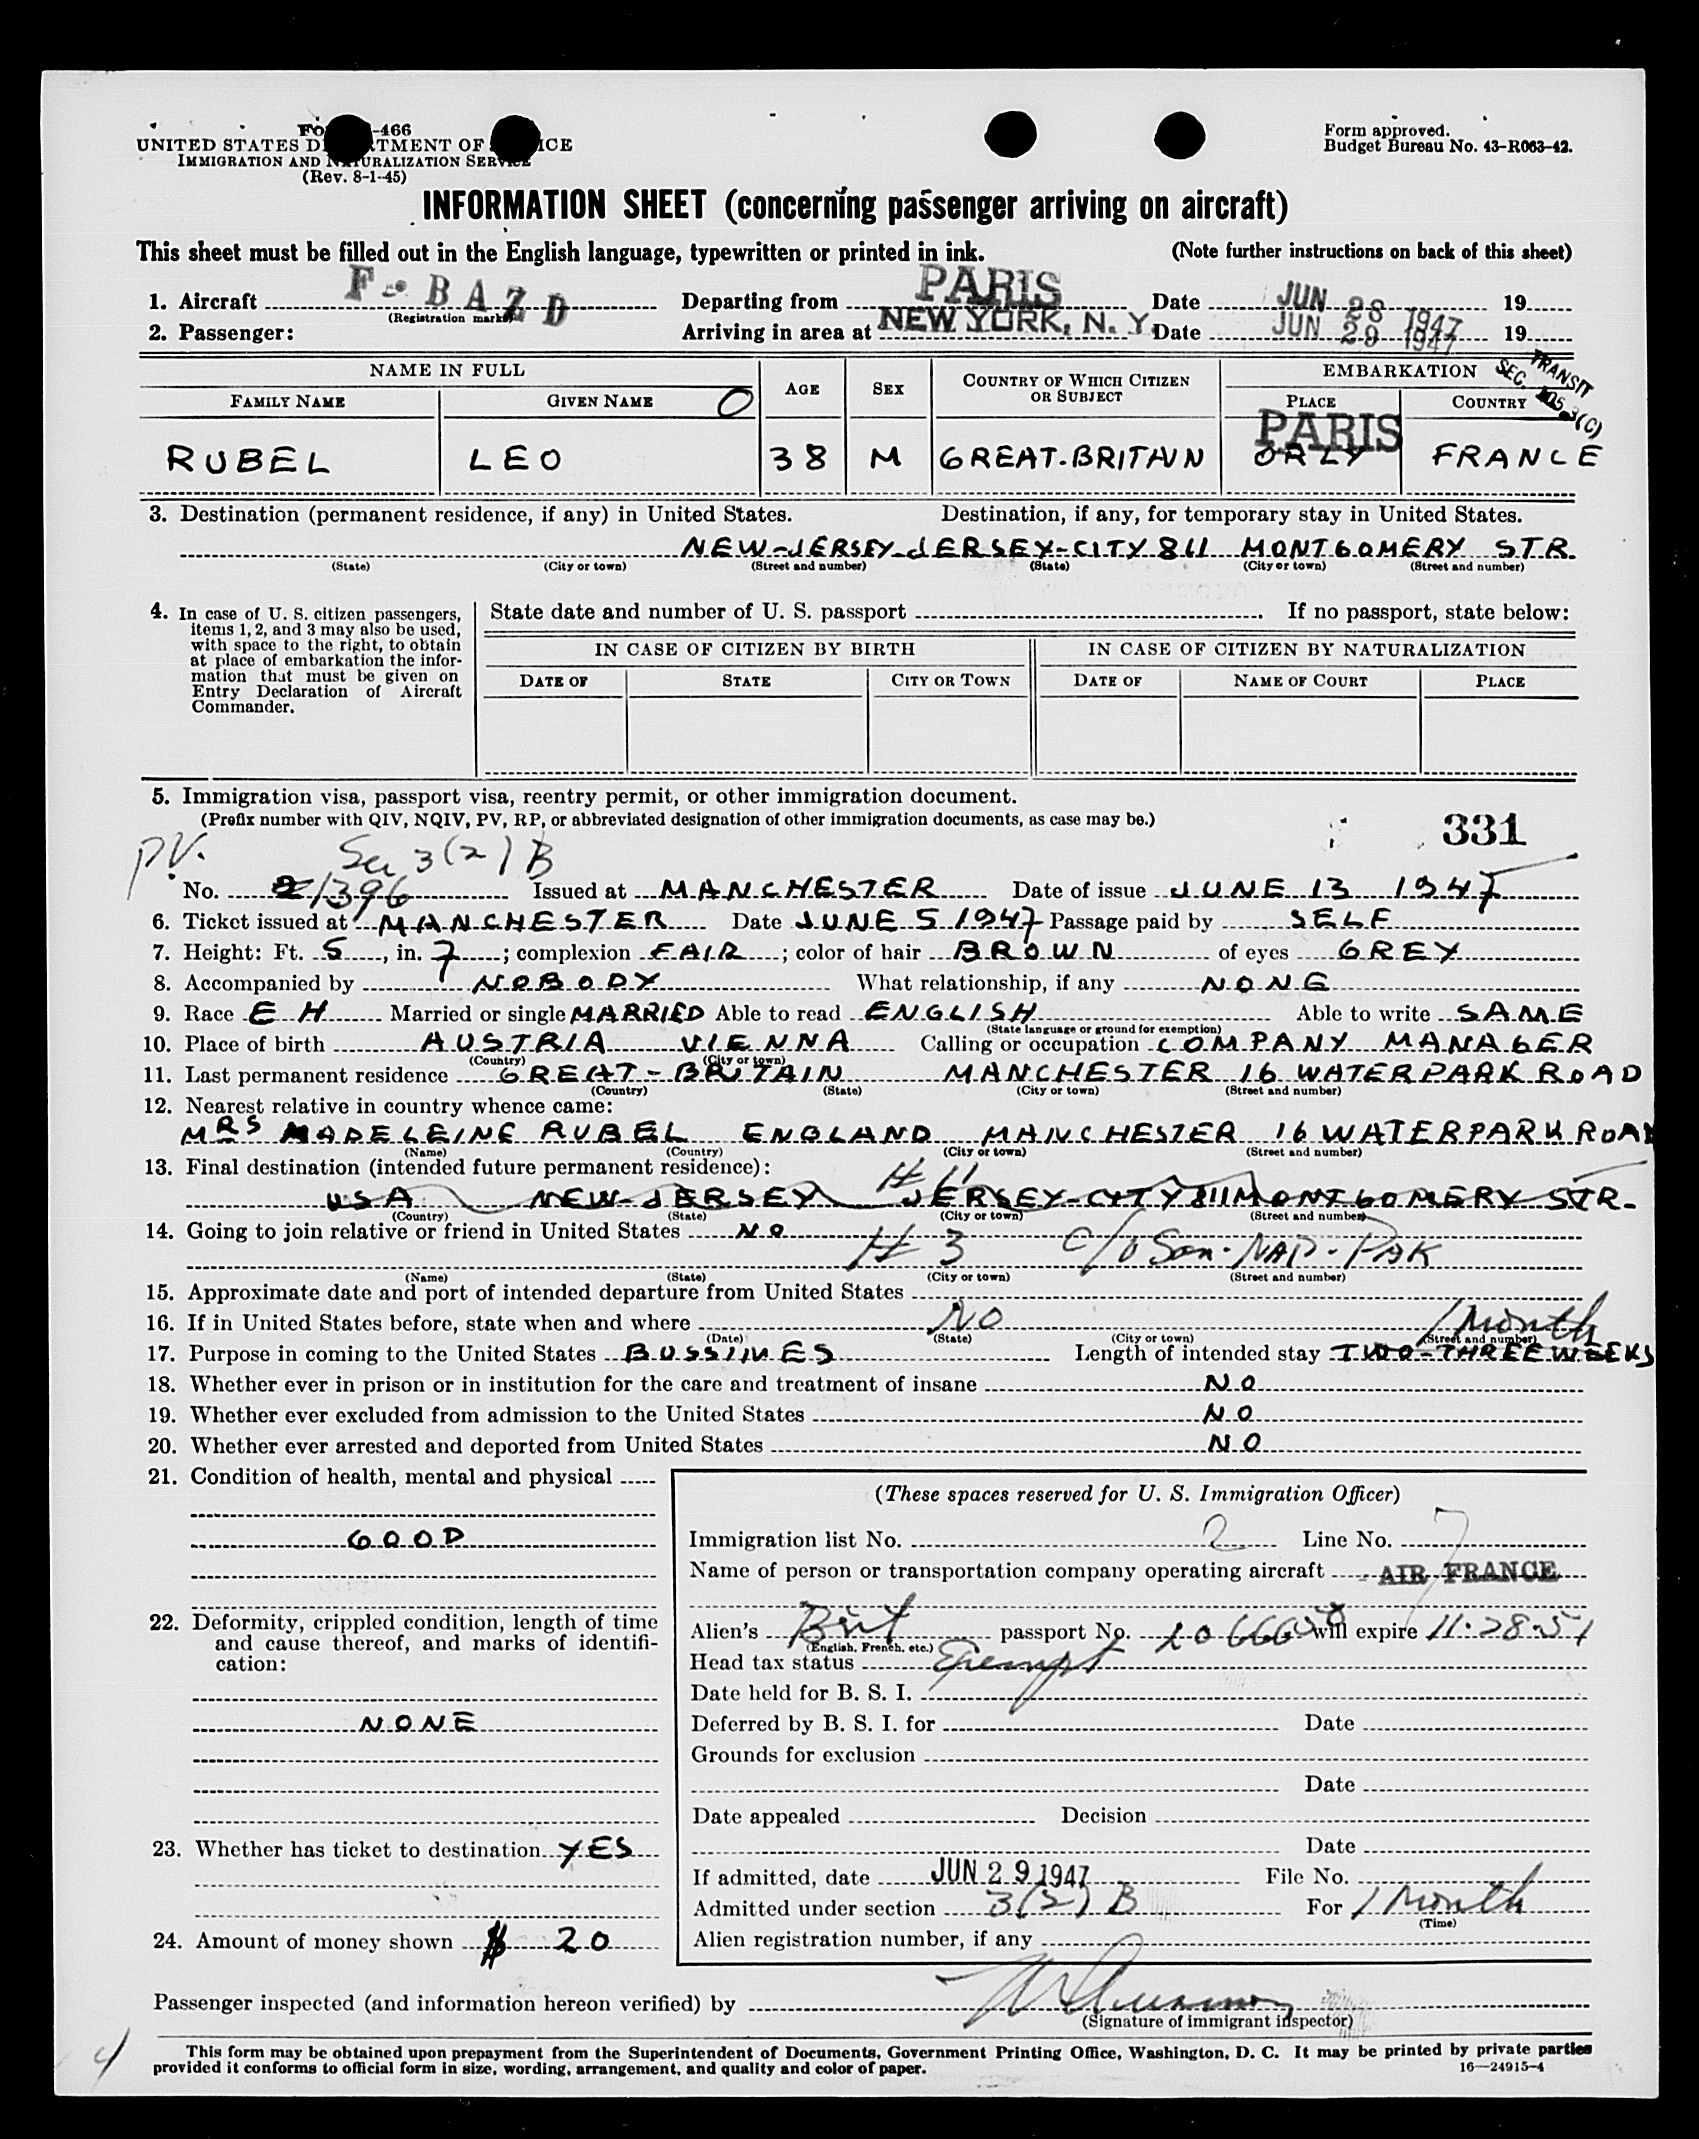 -466
UNITED STATES D TMENT OF ICE
IMMIGRATION AND NATURALIZATION SERVICE
(Rev. 8-1-45)
Form approved.
Budget Bureau No. 43-R063-42.
INFORMATION SHEET (concerning passenger arriving on aircraft)
This sheet must be filled out in the English language, typewritten or printed in ink. (Note further instructions on back of this sheet)
1. Aircraft F-BAZD Departing from PARIS Date JUN 28 1947 19
(Registration marks)
2. Passenger: Arriving in area at NEW YORK, N. Y. Date JUN 29 1947 19
NAME IN FULL AGE SEX COUNTRY OF WHICH CITIZEN OR SUBJECT EMBARKATION
TRANSIT
SEC. (C)
FAMILY NAME GIVEN NAME O PLACE COUNTRY
PARIS
RUBEL LEO 38 M GREAT-BRITAIN ORLY FRANCE
3. Destination (permanent residence, if any) in United States. Destination, if any, for temporary stay in United States.
NEW-JERSEY-JERSEY-CITY 811 MONTGOMERY STR.
(State) (City or town) (Street and number) (State) (City or town) (Street and number)
4. In case of U. S. citizen passengers, items 1, 2, and 3 may also be used, with space to the right, to obtain at place of embarkation the information that must be given on Entry Declaration of Aircraft Commander.
State date and number of U. S. passport . If no passport, state below:
IN CASE OF CITIZEN BY BIRTH IN CASE OF CITIZEN BY NATURALIZATION
DATE OF STATE CITY OR TOWN DATE OF NAME OF COURT PLACE
5. Immigration visa, passport visa, reentry permit, or other immigration document.
(Prefix number with QIV, NQIV, PV, RP, or abbreviated designation of other immigration documents, as case may be.)
331
PV. Sec 3(2) B
No. 1396 Issued at MANCHESTER Date of issue JUNE 13 1947
6. Ticket issued at MANCHESTER Date JUNE 5 1947 Passage paid by SELF
7. Height: Ft. 5, in. 7; complexion FAIR; color of hair BROWN of eyes GREY
8. Accompanied by NOBODY What relationship, if any NONE
9. Race EH Married or single MARRIED Able to read ENGLISH Able to write SAME
(State language or ground for exemption)
10. Place of birth AUSTRIA VIENNA Calling or occupation COMPANY MANAGER
(Country) (City or town)
11. Last permanent residence GREAT-BRITAIN MANCHESTER 16 WATERPARK ROAD
(Country) (State) (City or town) (Street and number)
12. Nearest relative in country whence came:
MRS MADELEINE RUBEL ENGLAND MANCHESTER 16 WATERPARK ROAD
(Name) (Country) (City or town) (Street and number)
13. Final destination (intended future permanent residence): # 11
USA NEW-JERSEY JERSEY-CITY 811 MONTGOMERY STR.
(Country) (State) (City or town) (Street and number)
14. Going to join relative or friend in United States NO
# 3 c/o San-NAP-PAK
(Name) (State) (City or town) (Street and number)
15. Approximate date and port of intended departure from United States
16. If in United States before, state when and where NO 1 Month
(Date) (State) (City or town) (Street and number)
17. Purpose in coming to the United States BUSSINES Length of intended stay TWO-THREE WEEKS
18. Whether ever in prison or in institution for the care and treatment of insane NO
19. Whether ever excluded from admission to the United States NO
20. Whether ever arrested and deported from United States NO
21. Condition of health, mental and physical
GOOD
22. Deformity, crippled condition, length of time and cause thereof, and marks of identification:
NONE
23. Whether has ticket to destination YES
24. Amount of money shown $ 20
(These spaces reserved for U. S. Immigration Officer)
Immigration list No. 2 Line No. 7
Name of person or transportation company operating aircraft AIR FRANCE
Alien's Brit passport No. will expire 11-28-51
(English, French, etc.)
Head tax status Exempt
Date held for B. S. I.
Deferred by B. S. I. for Date
Grounds for exclusion
Date
Date appealed Decision
Date
If admitted, date JUN 29 1947 File No.
Admitted under section 3(2) B For 1 Month
(Time)
Alien registration number, if any
Passenger inspected (and information hereon verified) by
(Signature of immigrant inspector)
4
This form may be obtained upon prepayment from the Superintendent of Documents, Government Printing Office, Washington, D. C. It may be printed by private parties
provided it conforms to official form in size, wording, arrangement, and quality and color of paper. 16—24915-4